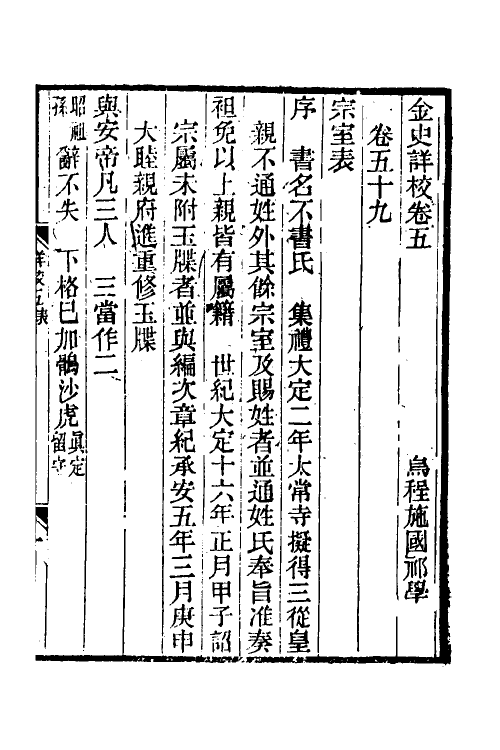 金史詳校卷五
烏程施國祁學
卷五十九
宗室表
序　書名不書氏　集禮大定二年太常寺擬得三從皇
親不通姓外其餘宗室及賜姓者並通姓氏奉旨准奏
袒免以上親皆有屬籍　世紀大定十六年正月甲子詔
宗屬未附玉牒者並與編次章紀承安五年三月庚申
大睦親府進重修玉牒
與安帝凡三人　三當作二
昭祖孫辭不失　下格巳加鶻沙虎眞定留守